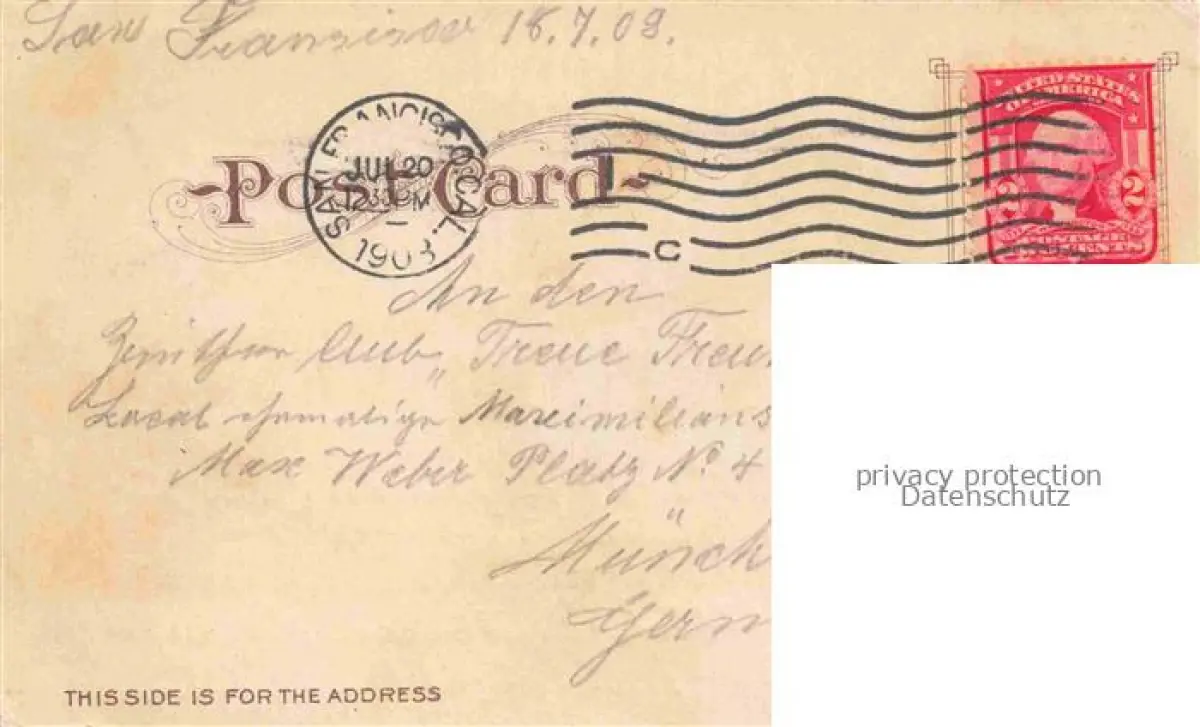 San Francisco 18.7.08.
UNITED STATES
OF AMERICA
SAN FRANCISCO, CAL.
JUL 20
12 30 PM
1908
Post Card
2 2
POSTAGE
CENTS
C
An den
Zither Club „Treue Freu
Local ehemalige Maximilians
Max Weber Platz No 4
Münch
Germ
privacy protection
Datenschutz
THIS SIDE IS FOR THE ADDRESS